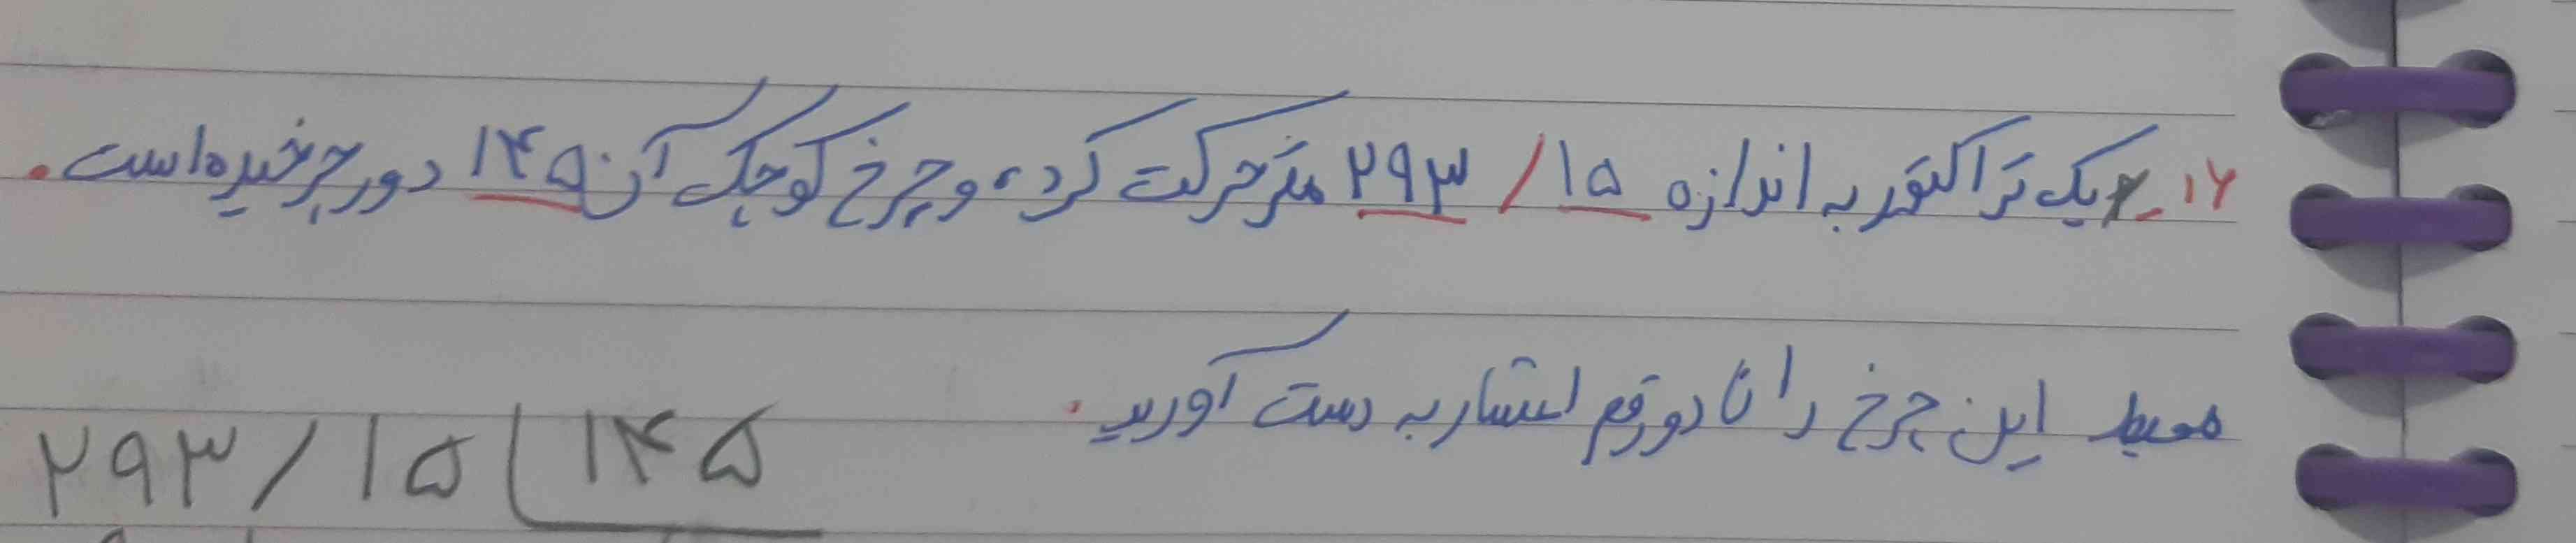 ۱۶_ یک تراکتور به اندازه ۲۹۳/۱۵ متر حرکت کرده و چرخ کوچک آن ۱۴۵ دور چرخیده است.
محیط این چرخ را تا دو رقم اعشار به دست آورید.
۲۹۳/۱۵ ۱۴۵